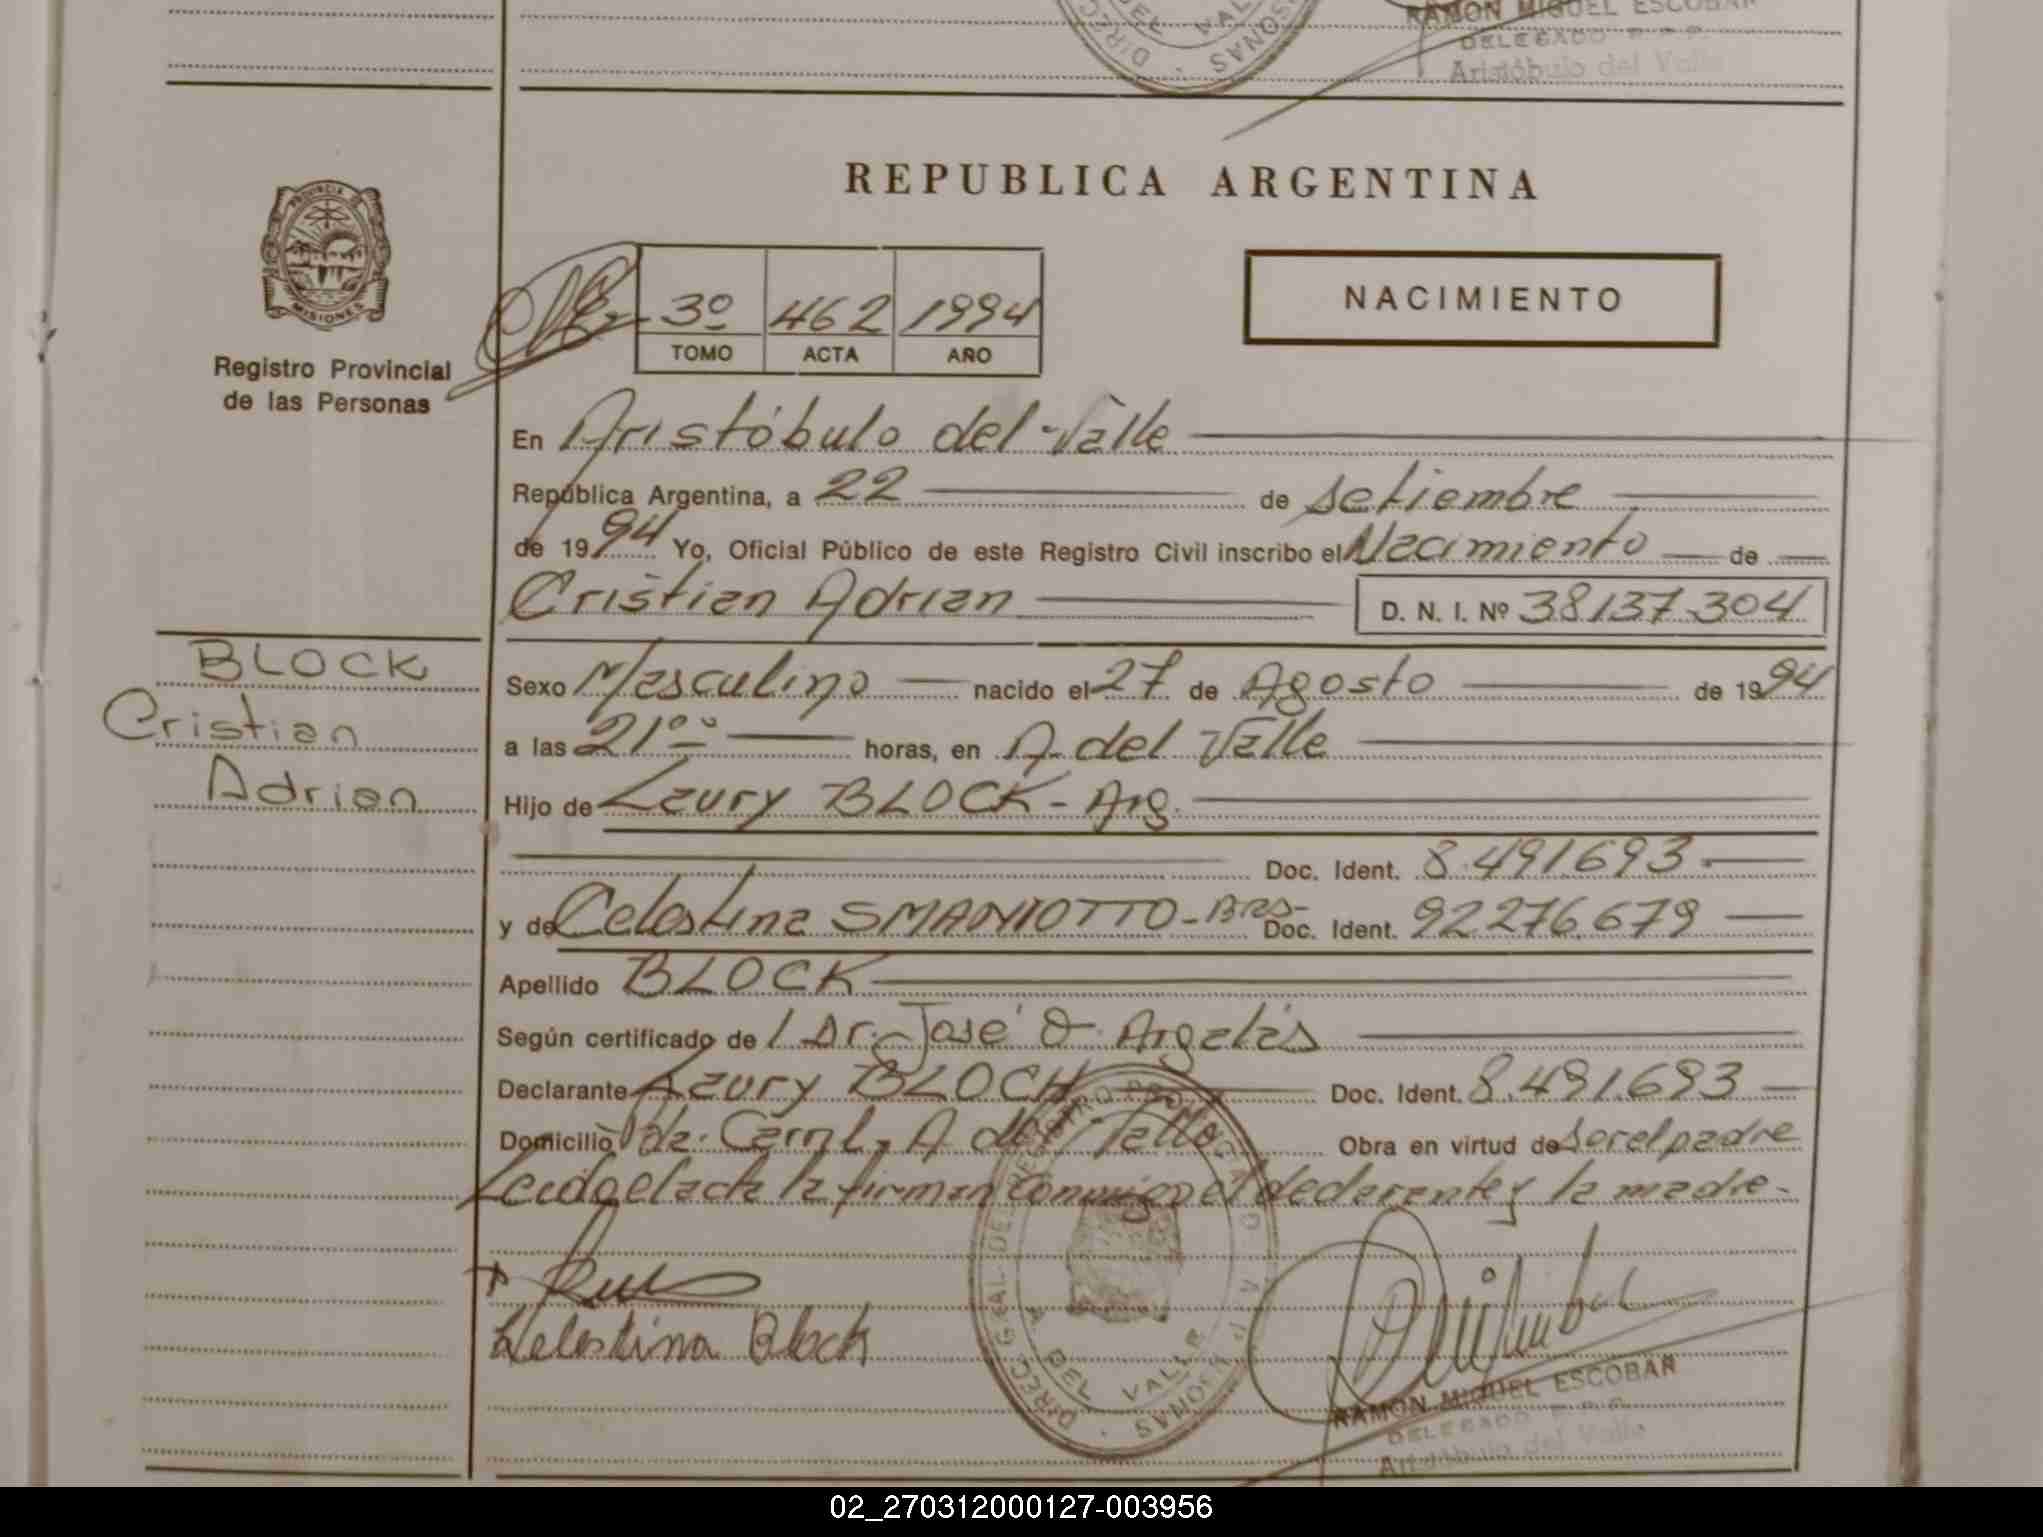 RAMON MIGUEL ESCOBAR
DELEGADO R P P
Aristóbulo del Valle
REPUBLICA ARGENTINA
PROVINCIA DE
MISIONES
Registro Provincial
de las Personas
3º 462 1994
TOMO ACTA AÑO
NACIMIENTO
En Aristóbulo del Valle
República Argentina, a 22 de setiembre
de 1994 Yo, Oficial Público de este Registro Civil inscribo el Nacimiento de
Cristian Adrian D. N. I. Nº 38.137.304
BLOCK
Cristian
Adrian
Sexo Masculino nacido el 27 de Agosto de 1994
a las 21ºº horas, en A. del Valle
Hijo de Laury BLOCK - Arg.
Doc. Ident. 8.491.693
y de Celestina SMANIOTTO - Bras- Doc. Ident. 92.276.679
Apellido BLOCK
Según certificado de l Dr. José O. Argalás
Declarante Laury BLOCK Doc. Ident. 8.491.693
Domicilio A. del Valle Obra en virtud de ser el padre
Leida el acta la firman conmigo el declarante y la madre-
Celestina Block
DIRECC. GRAL. DE REGISTRO PROVINCIAL PERSONAS
A. DEL VALLE
RAMON MIGUEL ESCOBAR
DELEGADO R. P. P.
Aristóbulo del Valle
02_270312000127-003956